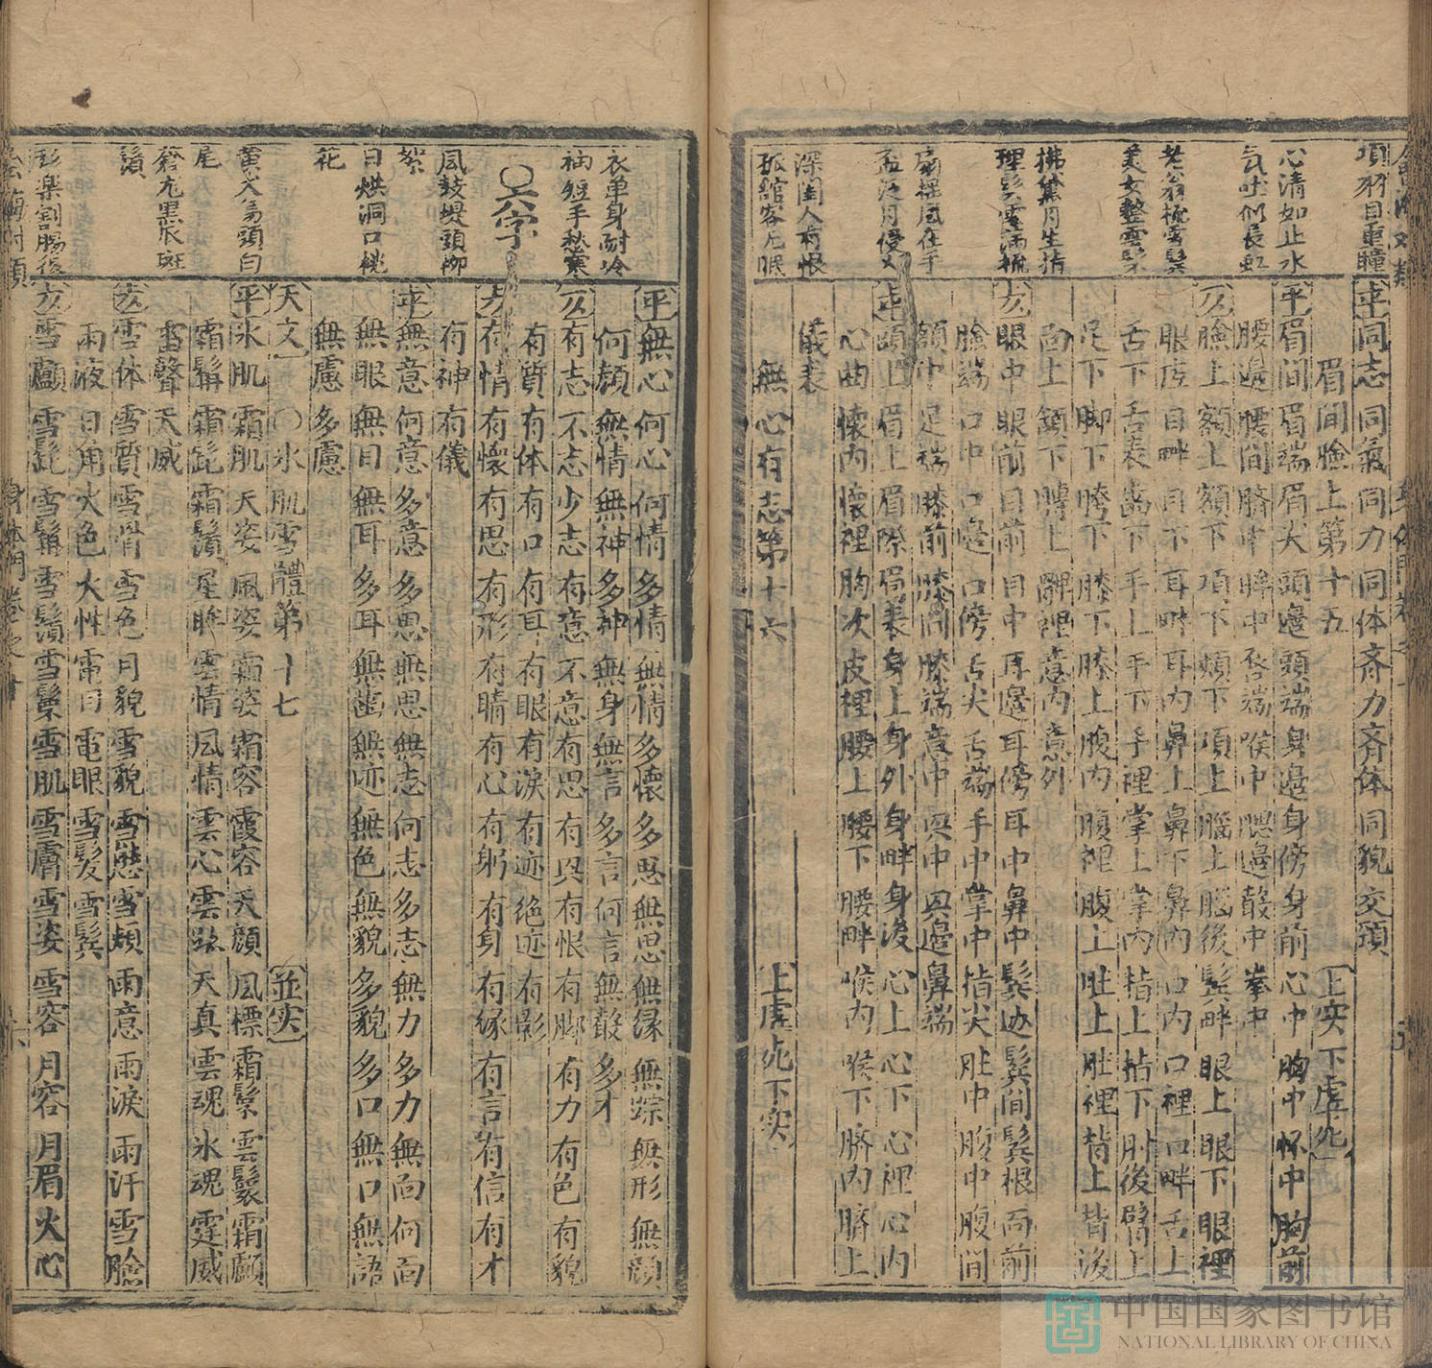 項羽目重瞳
心清如止水
氣吐似長虹
老翁梳雪鬢
美女整雲髩
拂黛月生指
理髮雲滿梳
扇揺風在手
深閨人有恨
孤館客无眠
平同志 同氣 同力 同体 齐力 齐体 同貌 交頭
眉間臉上第十五 上实下虚死
平眉間 眉端 眉尖 頭邊 頭端 身邊 身傍 身前 心中 胸中 怀中 胸前
腰邊 腰間 臍中 脾中 唇端 喉中 腮邊 鼓中 拳中
仄臉上 額上 額下 項下 頰下 項上 腦上 腦後 鬢畔 眼上 眼下 眼裡
眼底 目畔 目下 耳畔 耳内 鼻上 鼻下 鼻内 口内 口裡 口畔 舌上
舌下 舌表 齒下 手上 手下 手裡 掌上 掌内 指上 指下 肘後 臂上
足下 脚下 胯下 膝下 膝上 腹内 腹裡 腹上 肚上 肚裡 背上 背後
面上 頷下 髆上 髀裡 意内 意外
仄眼中 眼前 目前 目中 耳邊 耳傍 耳中 鼻中 鬢边 鬢間 鬢根 面前
臉端 口中 口邊 口傍 舌尖 舌端 手中 掌中 指尖 肚中 腹中 腹間
額中 足端 膝前 膝間 膝端 意中 鼻端
平頭上 眉上 眉際 眉表 身上 身外 身畔 身後 心上 心下 心裡 心内
心曲 懷内 懷裡 胸次 皮裡 腰上 腰下 腰畔 喉内 喉下 臍内 臍上
儀表
無心有志第十六 上虚死下实
衣單身耐冷
袖短手愁寒
○六字
風鼓堤頭柳
絮
日烘洞口桃
花
黄犬烏頭白
尾
蒼尨黑灰斑
鬚
平無心 何心 何情 多情 無情 多懷 多思 無思 無緣 無踪 無形 無顔
何顔 無情 無神 多神 無身 無言 多言 何言 無聲 多才
仄有志 不志 少志 有意 不意 有思 有具 有恨 有脚 有力 有色 有貌
有質 有体 有口 有耳 有眼 有淚 有迹 絶迹 有影
仄有情 有懷 有思 有形 有睛 有心 有躬 有身 有緣 有言 有信 有才
有神 有儀
平無意 何意 多意 多思 無思 無志 何志 多志 無力 多力 無面 何面
無眼 無目 無耳 多耳 無齒 無迹 無色 無貌 多貌 多口 無口 無語
無慮 多慮
天文 ○氷肌雪體第十七 並实
平氷肌 霜肌 天姿 風姿 霜姿 霜容 霞容 天顔 風標 霜鬢 雲鬟 霜顱
霜髯 霜髭 霜鬚 星眸 雲情 風情 雲心 雲跡 天真 雲魂 氷魂 霆威
雷聲 天威
仄雪体 雪質 雪骨 雪色 月貌 雪貌 雪頰 雨意 雨淚 雨汗 雪臉
雨液 日角 火色 火性 電目 電眼 雪髮 雪鬢
仄雪顱 雪髭 雪髯 雪鬚 雪鬢 雪肌 雪膚 雪姿 雪容 月容 月眉 火心